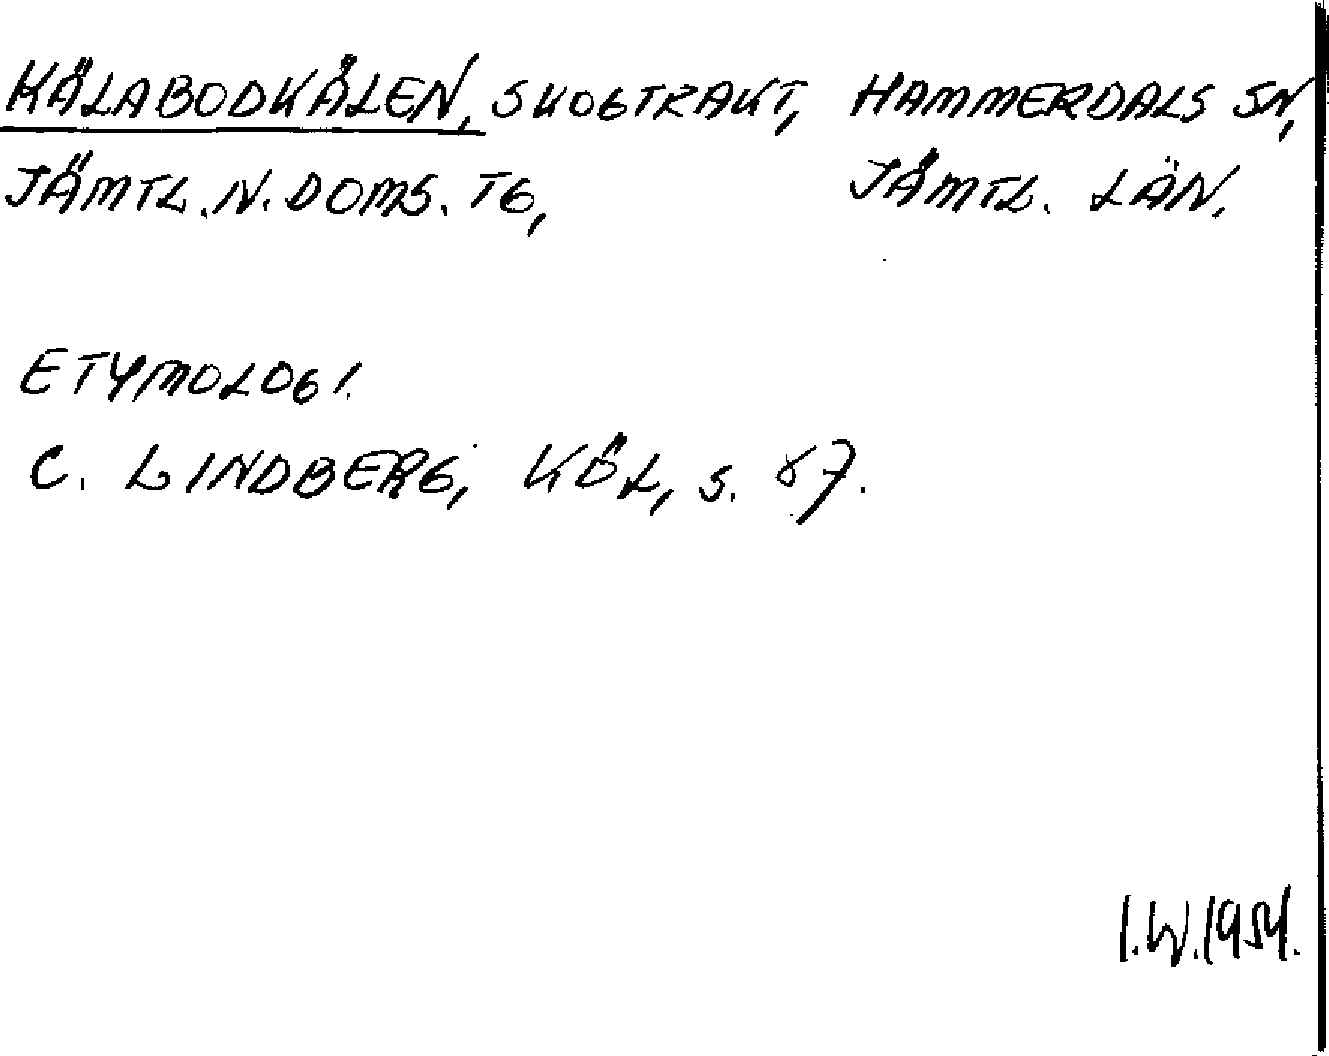 KÄLABODKÅLEN, SKOGTRAKT, HAMMERDALS SN,
JÄMTL. N. DOMS. TG, JÄMTL. LÄN.
ETYMOLOGI.
C. LINDBERG, KÖL, s. 87.
I.W.1954.